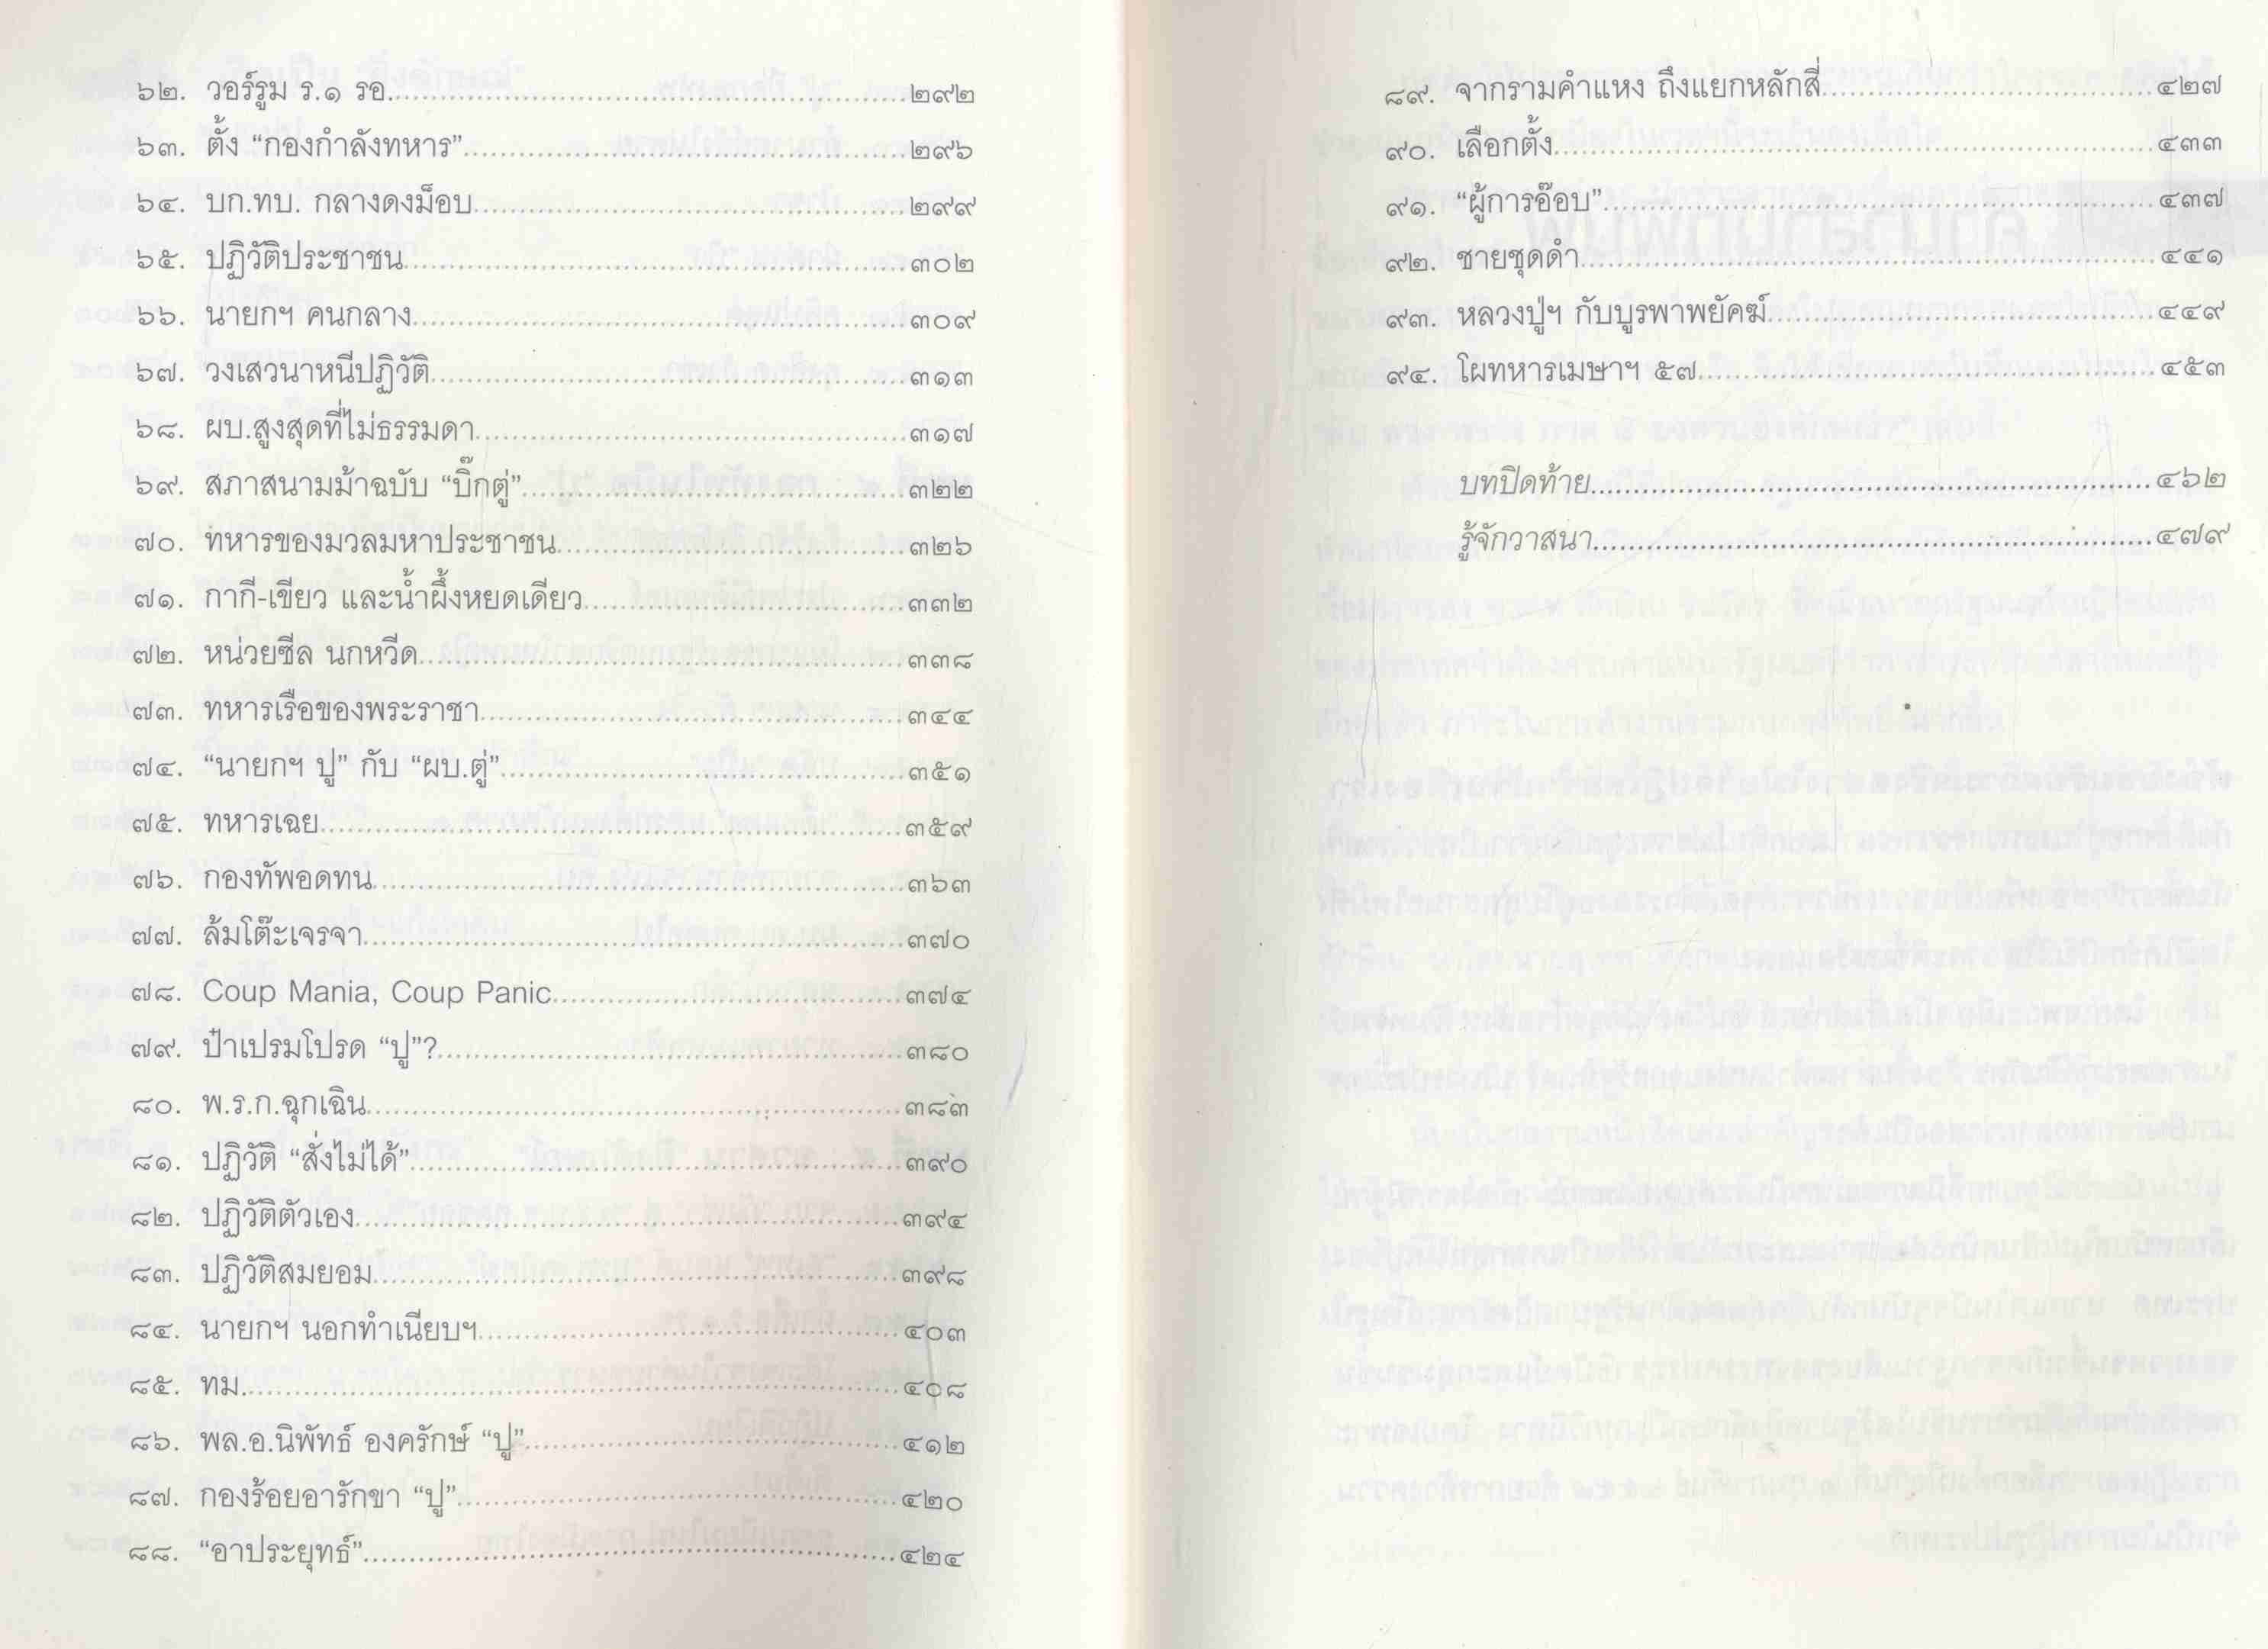 ๖๒. วอร์รูม ร.๑ รอ.....๒๙๒
๖๓. ตั้ง “กองกำลังทหาร”.....๒๙๖
๖๔. บก.ทบ. กลางดงม็อบ.....๒๙๙
๖๕. ปฏิวัติประชาชน.....๓๐๒
๖๖. นายกฯ คนกลาง.....๓๐๙
๖๗. วงเสวนาหนีปฏิวัติ.....๓๑๓
๖๘. ผบ.สูงสุดที่ไม่ธรรมดา.....๓๑๗
๖๙. สภาสนามม้าฉบับ “บิ๊กตู่”.....๓๒๒
๗๐. ทหารของมวลมหาประชาชน.....๓๒๖
๗๑. กากี-เขียว และน้ำผึ้งหยดเดียว.....๓๓๒
๗๒. หน่วยซีล นกหวีด.....๓๓๘
๗๓. ทหารเรือของพระราชา.....๓๔๔
๗๔. “นายกฯ ปู” กับ “ผบ.ตู่”.....๓๕๑
๗๕. ทหารเฉย.....๓๕๙
๗๖. กองทัพอดทน.....๓๖๓
๗๗. ล้มโต๊ะเจรจา.....๓๗๐
๗๘. Coup Mania, Coup Panic.....๓๗๔
๗๙. ป๋าเปรมโปรด “ปู”?.....๓๘๐
๘๐. พ.ร.ก.ฉุกเฉิน.....๓๘๓
๘๑. ปฏิวัติ “สั่งไม่ได้”.....๓๙๐
๘๒. ปฏิวัติตัวเอง.....๓๙๔
๘๓. ปฏิวัติสมยอม.....๓๙๘
๘๔. นายกฯ นอกทำเนียบฯ.....๔๐๓
๘๕. ทม.....๔๐๘
๘๖. พล.อ.นิพัทธ์ องครักษ์ “ปู”.....๔๑๒
๘๗. กองร้อยอารักขา “ปู”.....๔๒๐
๘๘. “อาประยุทธ์”.....๔๒๔
๘๙. จากรามคำแหง ถึงแยกหลักสี่.....๔๒๗
๙๐. เลือกตั้ง.....๔๓๓
๙๑. “ผู้การอ๊อบ”.....๔๓๗
๙๒. ชายชุดดำ.....๔๔๑
๙๓. หลวงปู่ฯ กับบูรพาพยัคฆ์.....๔๔๙
๙๔. โผทหารเมษาฯ ๕๗.....๔๕๓
บทปิดท้าย.....๔๖๒
รู้จักวาสนา.....๔๗๙